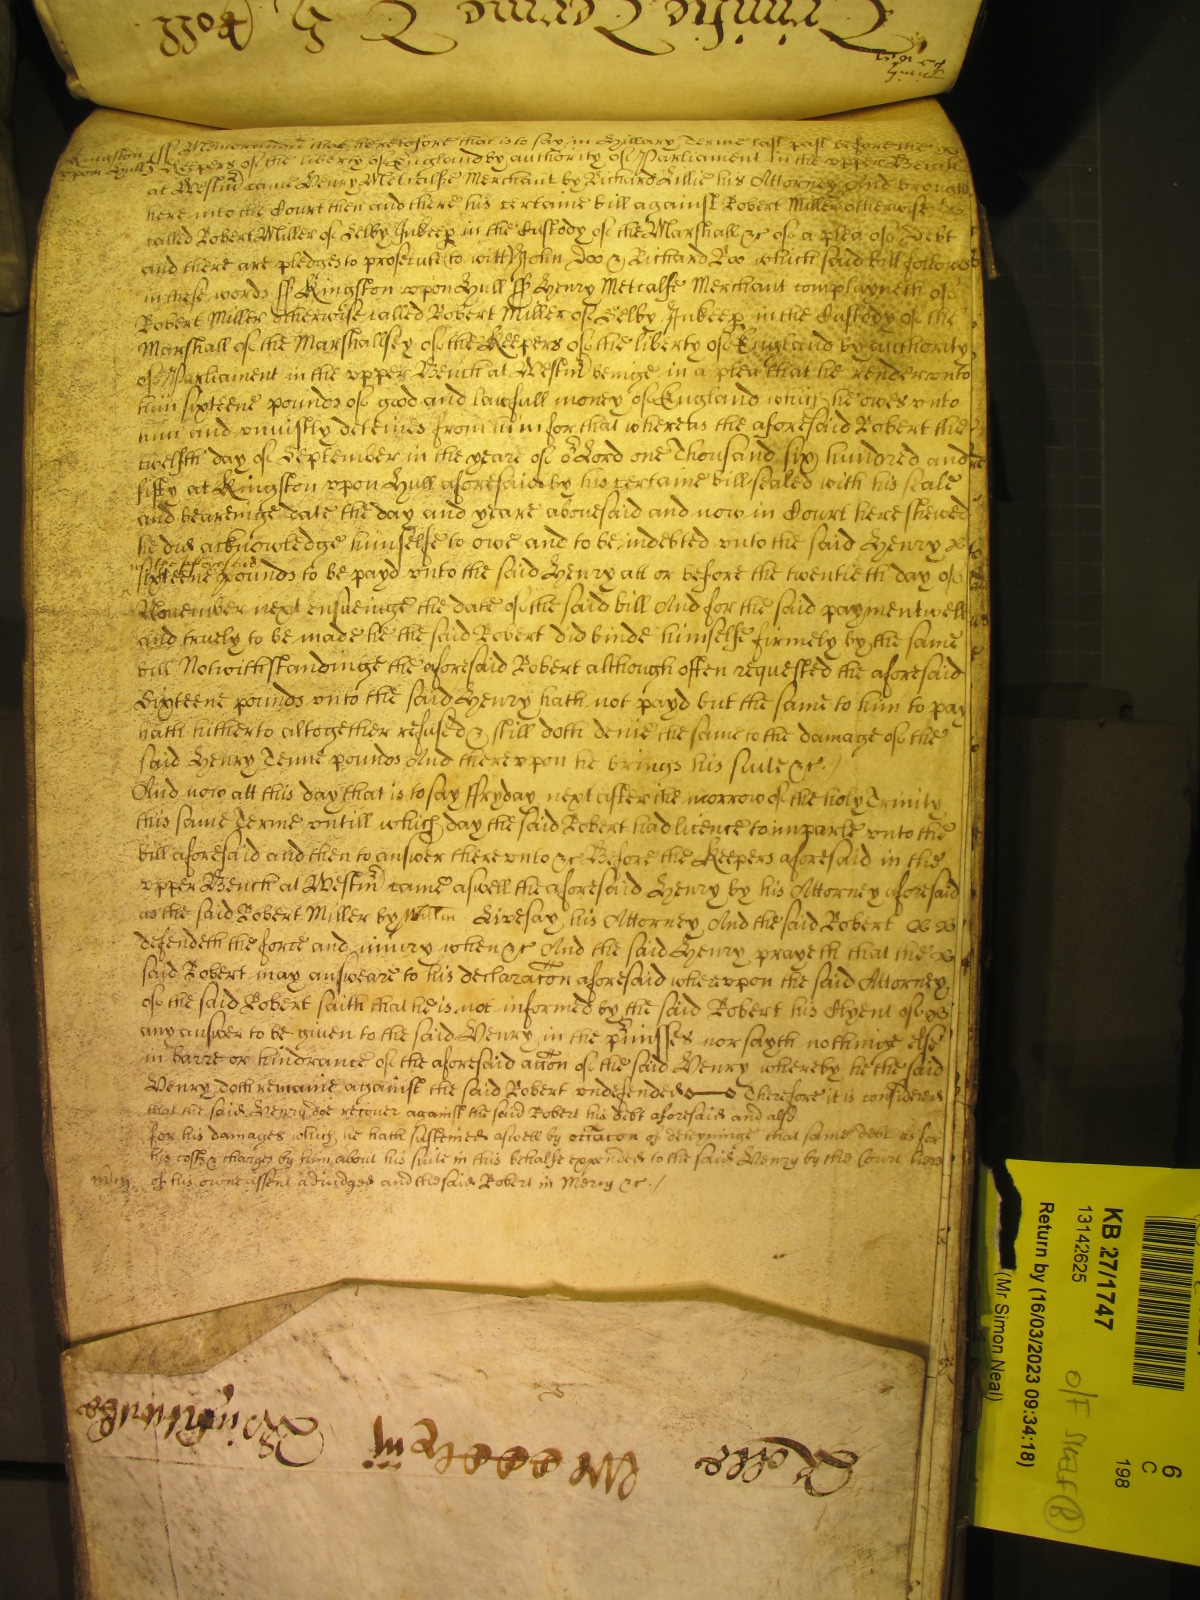 Trinitie Terme 1651 Roll
Kingston ss Memorandum that heretofore that is to say in Hillary Terme last past before the
upon Hull Keepers of the liberty of England by authority of Parliament in the upper Bench
at Westm came Henry Metcalfe Merchant by Richard Lillie his Attorney And brought
here into the Court then and there his certaine bill against Robert Miller otherwise
called Robert Miller of Selby Inkeep in the Custody of the Marshall &c of a plea of Debt
and there are pledges to prosecute to witt John Doo & Richard Roo which said bill followes
in these words ss Kingston upon Hull ss Henry Metcalfe Merchant complayneth of
Robert Miller otherwise called Robert Miller of Selby Inkeep in the Custody of the
Marshall of the Marshallsey of the Keepers of the liberty of England by authority
of Parliament in the upper Bench at Westm beinge in a plea that he render unto
him sixteene pounds of good and lawfull money of England which he owes unto
him and uniustly deteines from him for that whereas the aforesaid Robert the
twelfth day of September in the yeare of or Lord one Thousand six hundred and
fifty at Kingston upon Hull aforesaid by his certaine bill sealed with his seale
and beareinge date the day and yeare abovesaid and now in Court here shewed
he did acknowledge himselfe to owe and to be indebted unto the said Henry
in the aforesaid
sixteene pounds to be payd unto the said Henry att or before the twentieth day of
November next ensueinge the date of the said bill And for the said payment well
and truely to be made he the said Robert did binde himselfe firmely by the same
bill Notwithstandinge the aforesaid Robert although often requested the aforesaid
Sixteene pounds unto the said Henry hath not payd but the same to him to pay
hath hitherto altogether refused & still doth denie the same to the damage of the
said Henry Tenne pounds And thereupon he brings his suite &c.
And now att this day that is to say ffryday next after the morrow of the holy Trinity
this same Terme untill which day the said Robert had licence to imparle unto the
bill aforesaid and then to answer thereunto &c Before the Keepers aforesaid in the
upper Bench at Westm came aswell the aforesaid Henry by his Attorney aforesaid
as the said Robert Miller by Willm Livesay his Attorney And the said Robert
defendeth the force and iniury when &c And the said Henry prayeth that the
said Robert may answeare to his declaracon aforesaid whereupon the said Attorney
of the said Robert saith that he is not informed by the said Robert his Clyent of
any answer to be given to the said Henry in the pmisses nor sayth nothinge else
in barre or hindrance of the aforesaid accon of the said Henry whereby he the said
Henry doth remaine against the said Robert undefended Therefore it is considered
that the said Henry doe recover against the said Robert his debt aforesaid and also
for his damages which he hath susteined aswell by occacon of deteyninge that same debt as for
his costs & charges by him about his suite in this behalfe expended to the said Henry by the Court here
mcy of his owne assent adiudged and the said Robert in Mercy &c.
Rolle
KB 27/1747
13142625
Return by (16/03/2023 09:34:18)
(Mr Simon Neal)
6
C
198